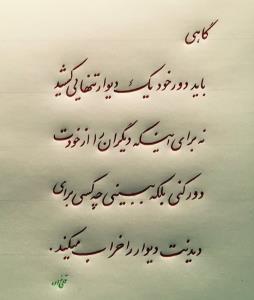 گاهی
باید دور خود یک دیوار تنهایی کشید
نه برای اینکه دیگران را از خودت
دور کنی بلکه ببینی چه کسی برای
دیدنت دیوار را خراب میکند .